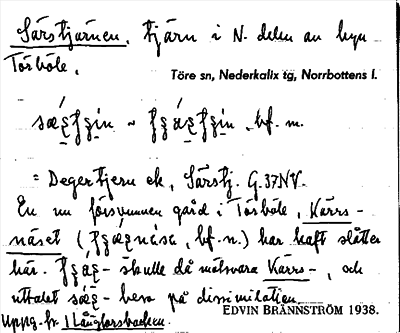 Särstjärnen. tjärn i N. delen av byn
Törböle.
Töre sn, Nederkalix tg, Norrbottens l.
~ bf. m.
= Degertjern ek, Särstj. G.37NV.
En nu försvunnen gård i Törböle, Kärrs-
näset ( , bf. n.) har haft slåtter
här. skulle då motsvara Kärrs-, och
uttalet bero på dissimilation.
EDVIN BRÄNNSTRÖM 1938.
Uppg. fr. Långforsbacken.